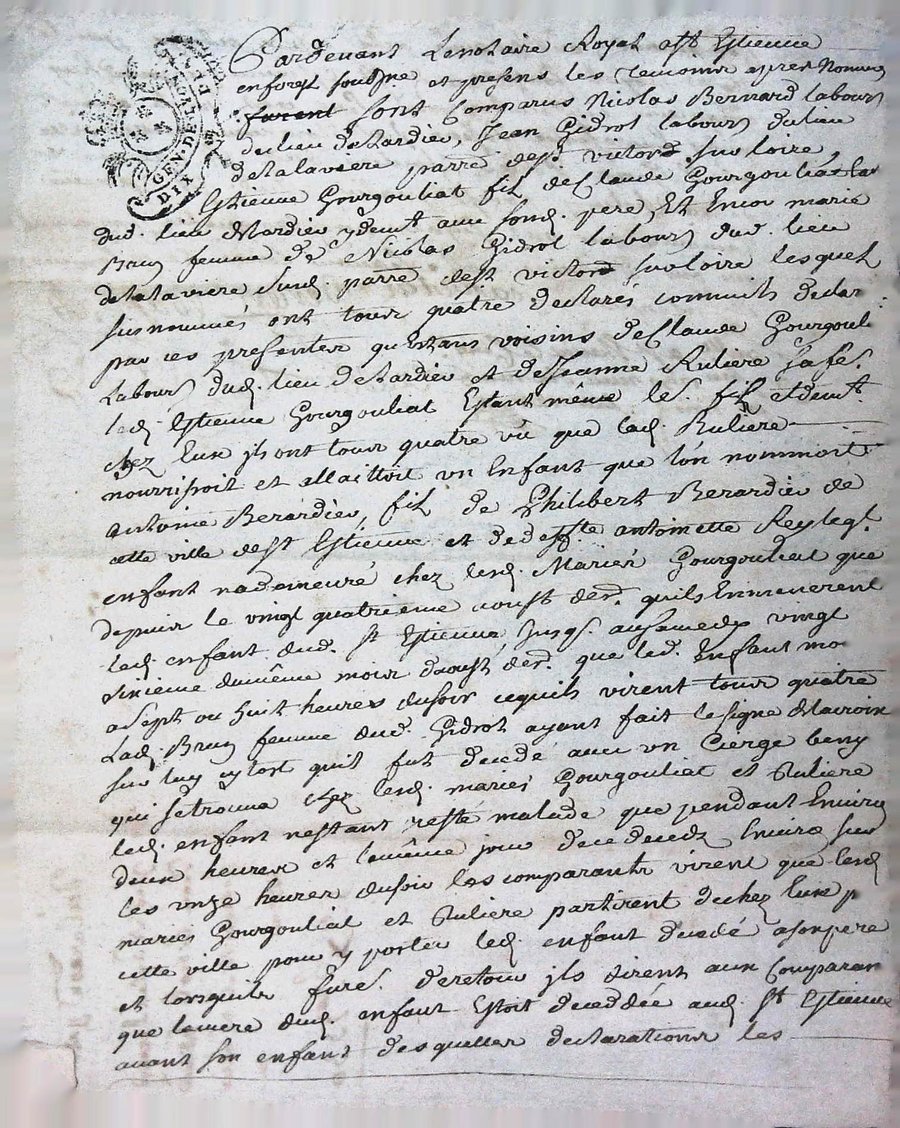 GEN. DE LYON
DIX
Pardevant Lenotaire Royal a St Estienne
enforest sousigné et presens les temoins apres Nommés
furent sont Comparus Nicolas Bernard labour
du lieu de Lardier, Jean Gidrol labour du lieu
de la laviere parre de St victord sur loire,
Estienne Gourgouliat fils de Claude Gourgouliat
dud. lieu de Lardier y demt avec sond. pere, Et Encor marie
Brun femme de Nicolas Gidrol labour dud. lieu
de la laviere susd. parre de St victord sur loire lesquels
susnommés ont tous quatre declarés comm'ils declar
par ces presentes qu'Estans voisins de Claude Gourgouli
Labour dud. lieu de Lardier et de Jeanne Ruliere sa fe.
led. Estienne Gourgouliat Estant même le fils et demt
chez Eux ils ont tous quatre vû que lad. Ruliere
nourrissoit et allaittoit un Enfant que lon nommoit
antoine Berardier, fils de Philibert Berardier de
cette ville de St Estienne et de deffte antoinette Rey leql.
enfant n'a demeuré chez lesd. Mariés Gourgouliat que
depuis le vingt quatrieme aoust der. qu'ils Emmenerent
led. enfant dud. St Estienne jusqs. au samedy vingt
sixieme du même mois d'aoust der. que led. Enfant mo
a sept ou huit heures du soir ce qu'ils virent tous quatre
Lad. Brun femme dud. Gidrol ayant fait le signe de la croix
sur luy sy tost qu'il fut decedé avec un Cierge beny
qui se trouva chez lesd. mariés Gourgouliat et Ruliere
led. enfant n'estant resté malade que pendant Environ
deux heures et le même jour de ce decedz Environ sur
les onze heures du soir les comparants virent que lesd.
mariés Gourgouliat et Ruliere partirent de chez Eux p
cette ville pour y porter led. enfant decedé a son pere
et lorsqu'ils furt. de retour ils dirent aux Comparan
que la mere dud. enfant Estoit deceddée aud. St Estienne
avant son enfant desquelles declarations les